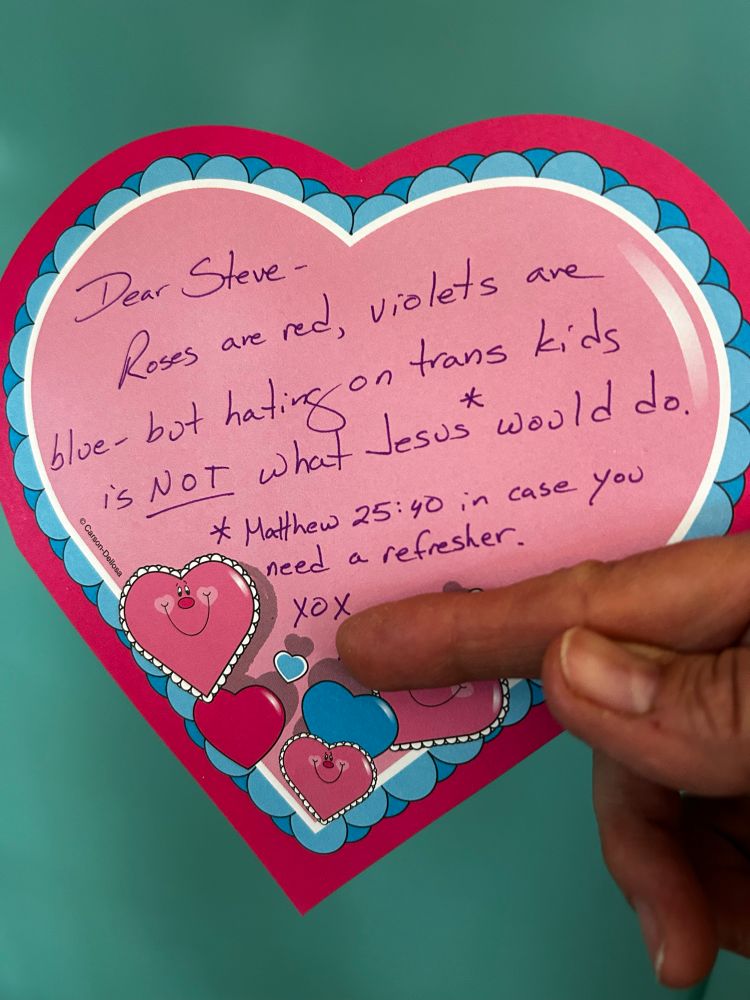 Dear Steve-
Roses are red, violets are
blue- but hating on trans kids
is NOT what Jesus* would do.
* Matthew 25:40 in case you
need a refresher.
XOX
© Carson-Dellosa